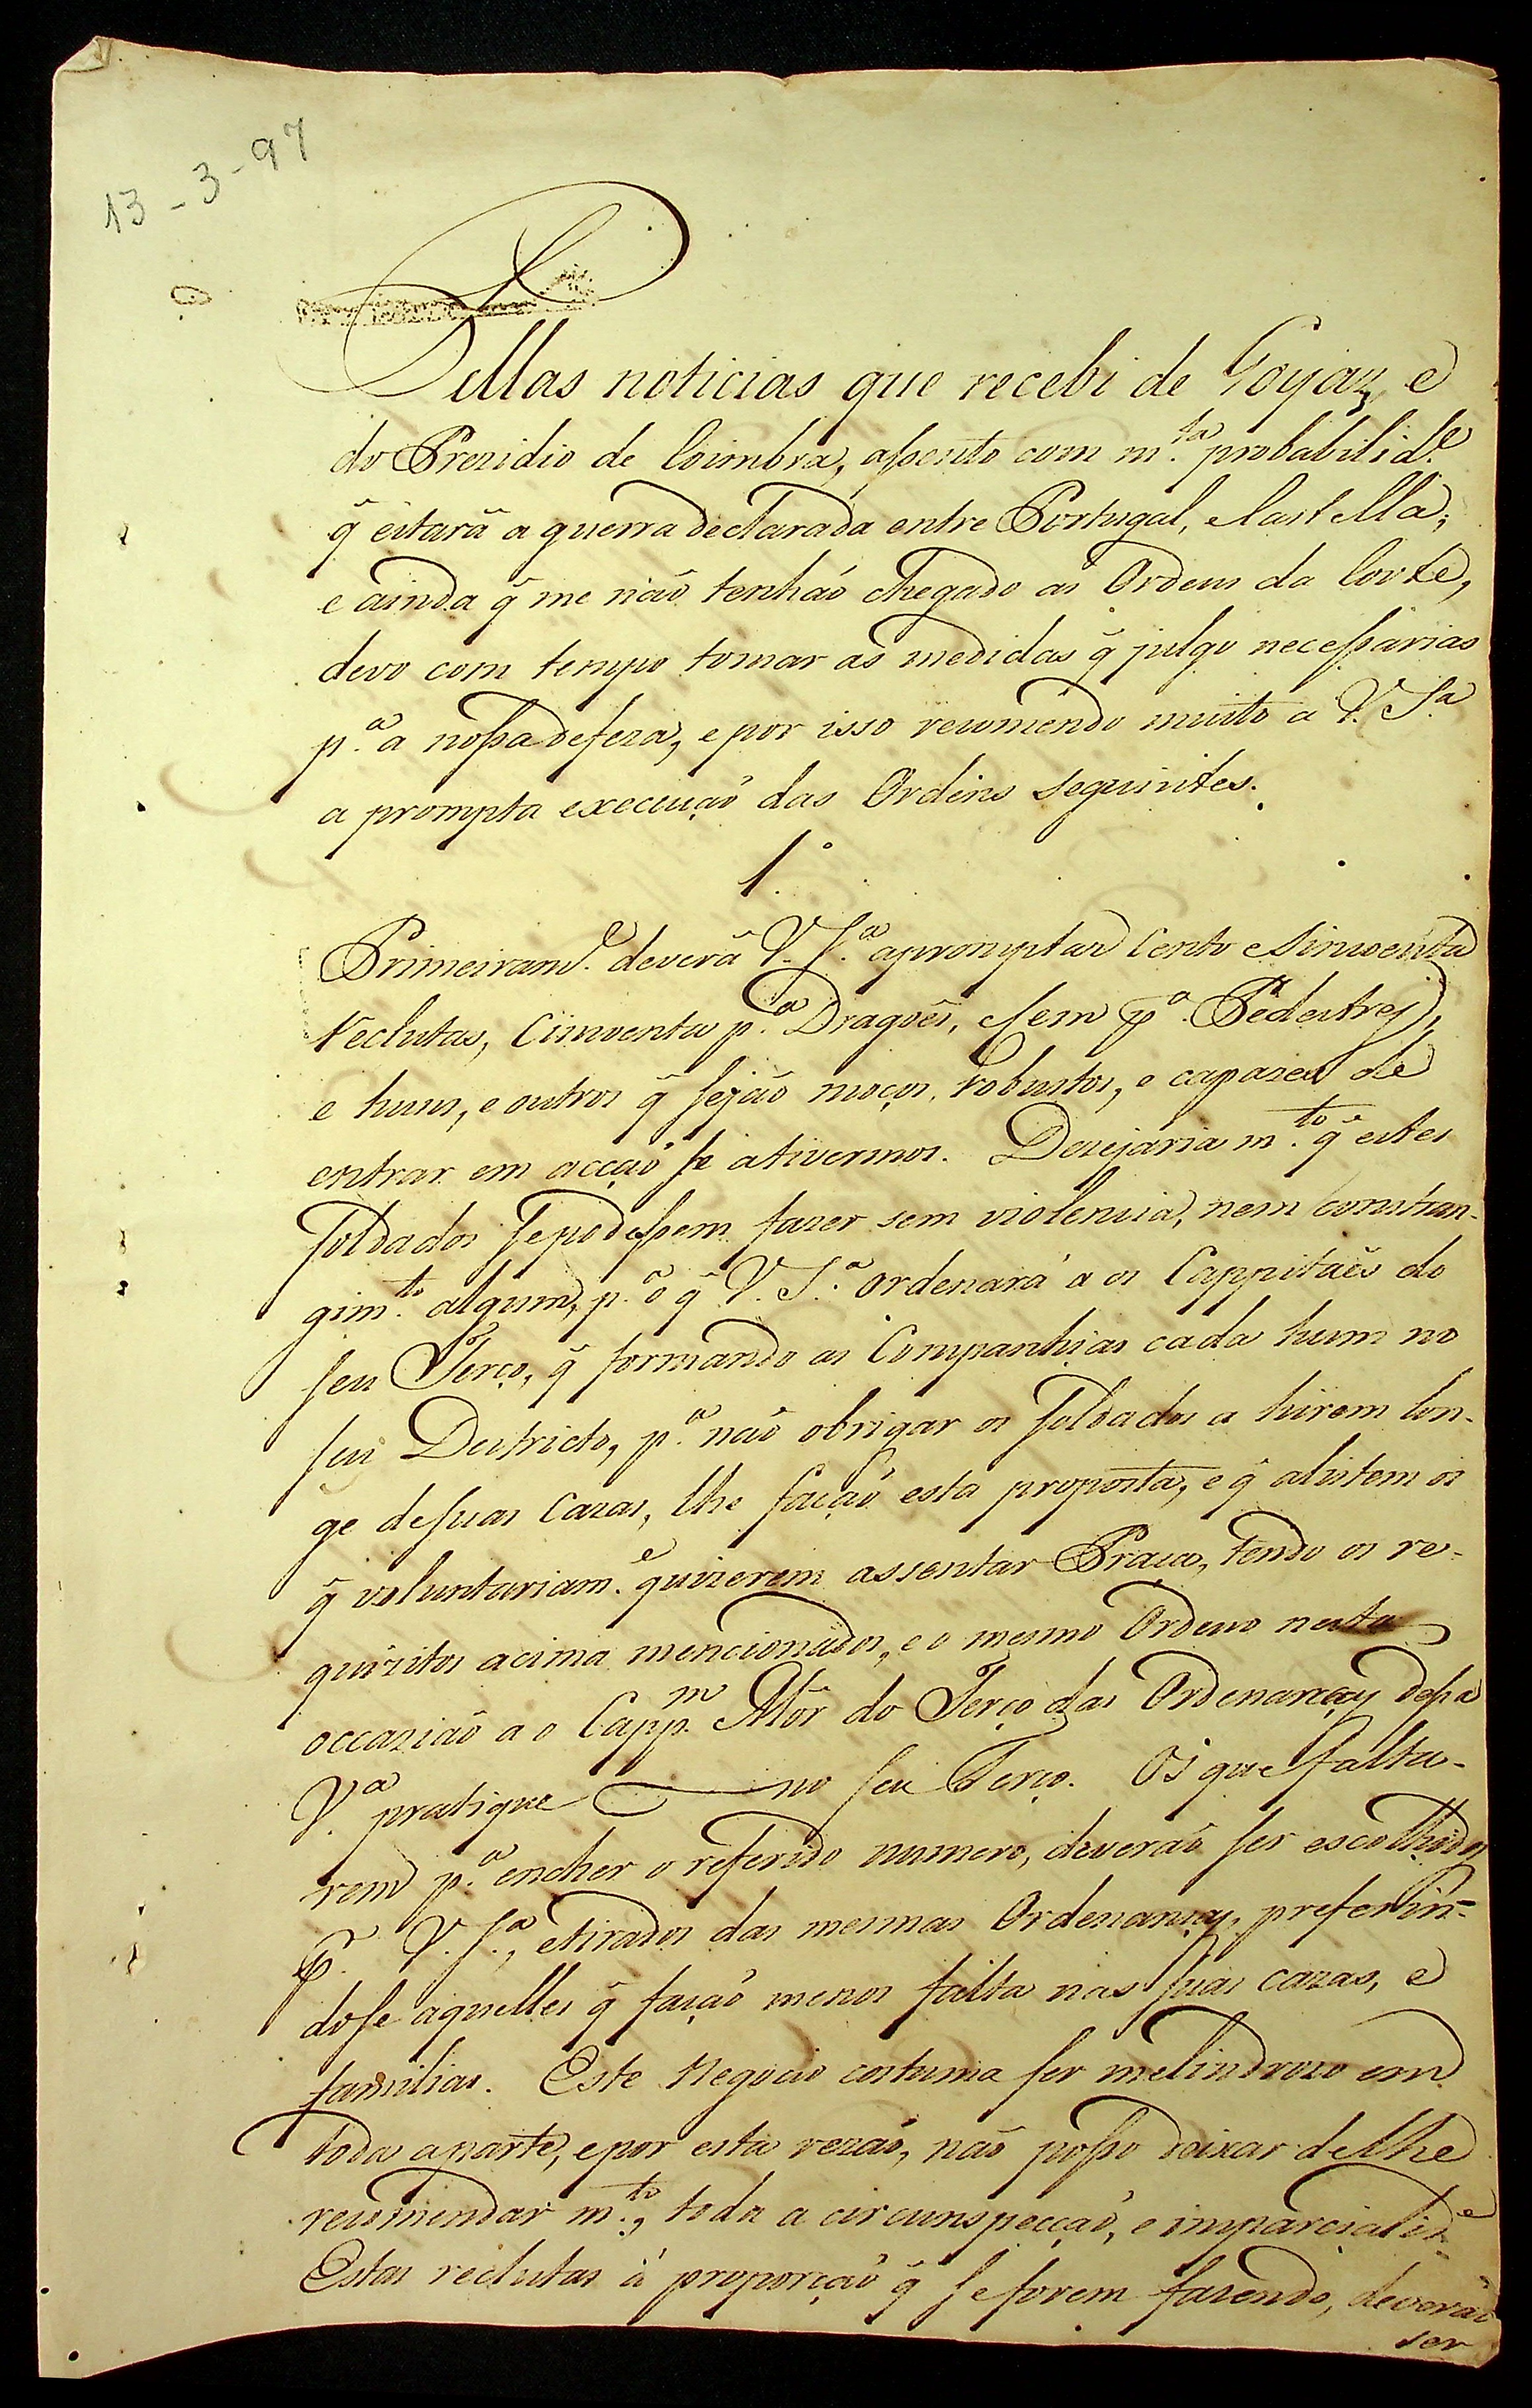 13-3-97
Pellas noticias que recebi de Goyaz, e
do Prezidio de Coimbra, assento com m.ta probabilid.e
q̃ estará a guerra declarada entre Portugal, e Castella;
e ainda q̃ me não tenhão chegado as Ordens da Corte,
devo com tempo tomar as medidas q̃ julgo necessarias
p.a a nossa defeza, e por isso recomendo muito a V. S.a
a prompta execução das Ordens seguintes.
1.o
Primeiram.e deverá V. S.a apromptar Cento e Sincoenta
reclutas, Cincoenta p.a Dragões, e Sem p.a Pedestres,
e huns, e outros q̃ sejão moços, robustos, e capazes de
entrar em acção se ativermos. Dezejaria m.to q̃ estes
Soldados se podessem fazer sem violencia, nem constran-
gim.to algum, p.a o q̃ V. S.a ordenará a os Cappitães do
seu Terço, q̃ formando as Companhias cada hum no
seu Destricto, p.a não obrigar os Soldados a hirem lon-
ge de suas Cazas, lhe fação esta proposta, e q̃ alistem os
q̃ voluntariam.e quizerem assentar Praça, tendo os re-
quizitos acima mencionados, e o mesmo Ordeno nesta
occazião a o Capp.m Mór do Terço das Ordenanças dessa
V.a pratique no seu Terço. Os que falta-
rem p.a encher o referido numero, deverão ser escolhidos
P. V. S.a, e tirados das mesmas Ordenanças, preferin-
dose aquelles q̃ fação menos falta nas suas cazas, e
familias. Este Negocio costuma ser melindrozo em
toda a parte, e por esta rezão, não posso deixar de lhe
recomendar m.to, toda a circunspecção, e imparcialid.e
Estas reclutas á proporção q̃ se forem fazendo, deverão
ser